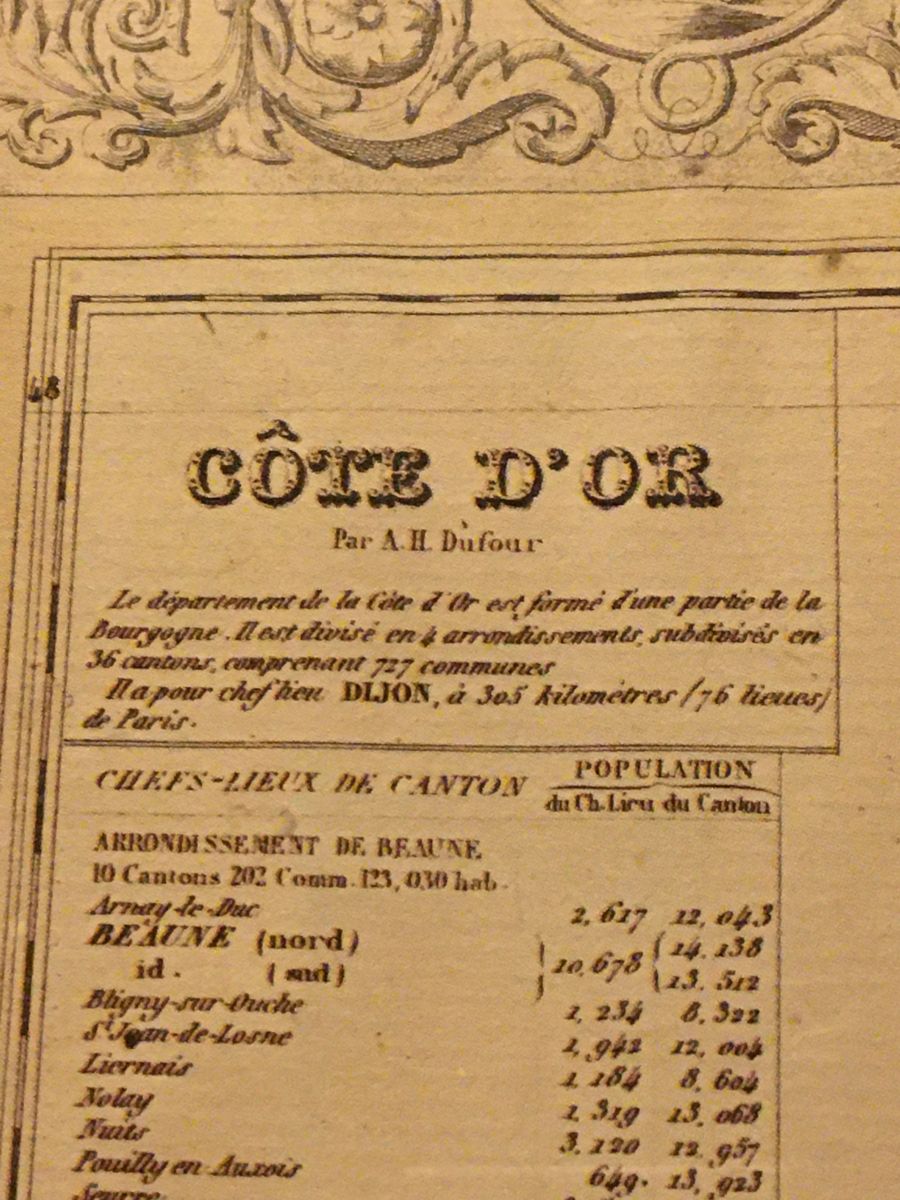 48
CÔTE D'OR
Par A. H. Dufour
Le département de la Côte d'Or est formé d'une partie de la
Bourgogne. Il est divisé en 4 arrondissements, subdivisés en
36 cantons, comprenant 727 communes
Il a pour chef lieu DIJON, à 305 kilomètres (76 lieues)
de Paris.
CHEFS-LIEUX DE CANTON POPULATION
du Ch. Lieu du Canton
ARRONDISSEMENT DE BEAUNE
10 Cantons 202 Comm. 123,030 hab.
Arnay-le-Duc 2,617 12,043
BEAUNE (nord) 10,678 14,138
id. (sud) 13,512
Bligny-sur-Ouche 1,234 8,322
St Jean-de-Losne 1,942 12,004
Liernais 1,184 8,604
Nolay 1,319 13,068
Nuits 3,120 12,957
Pouilly en Auxois 649. 13,923
Seurre